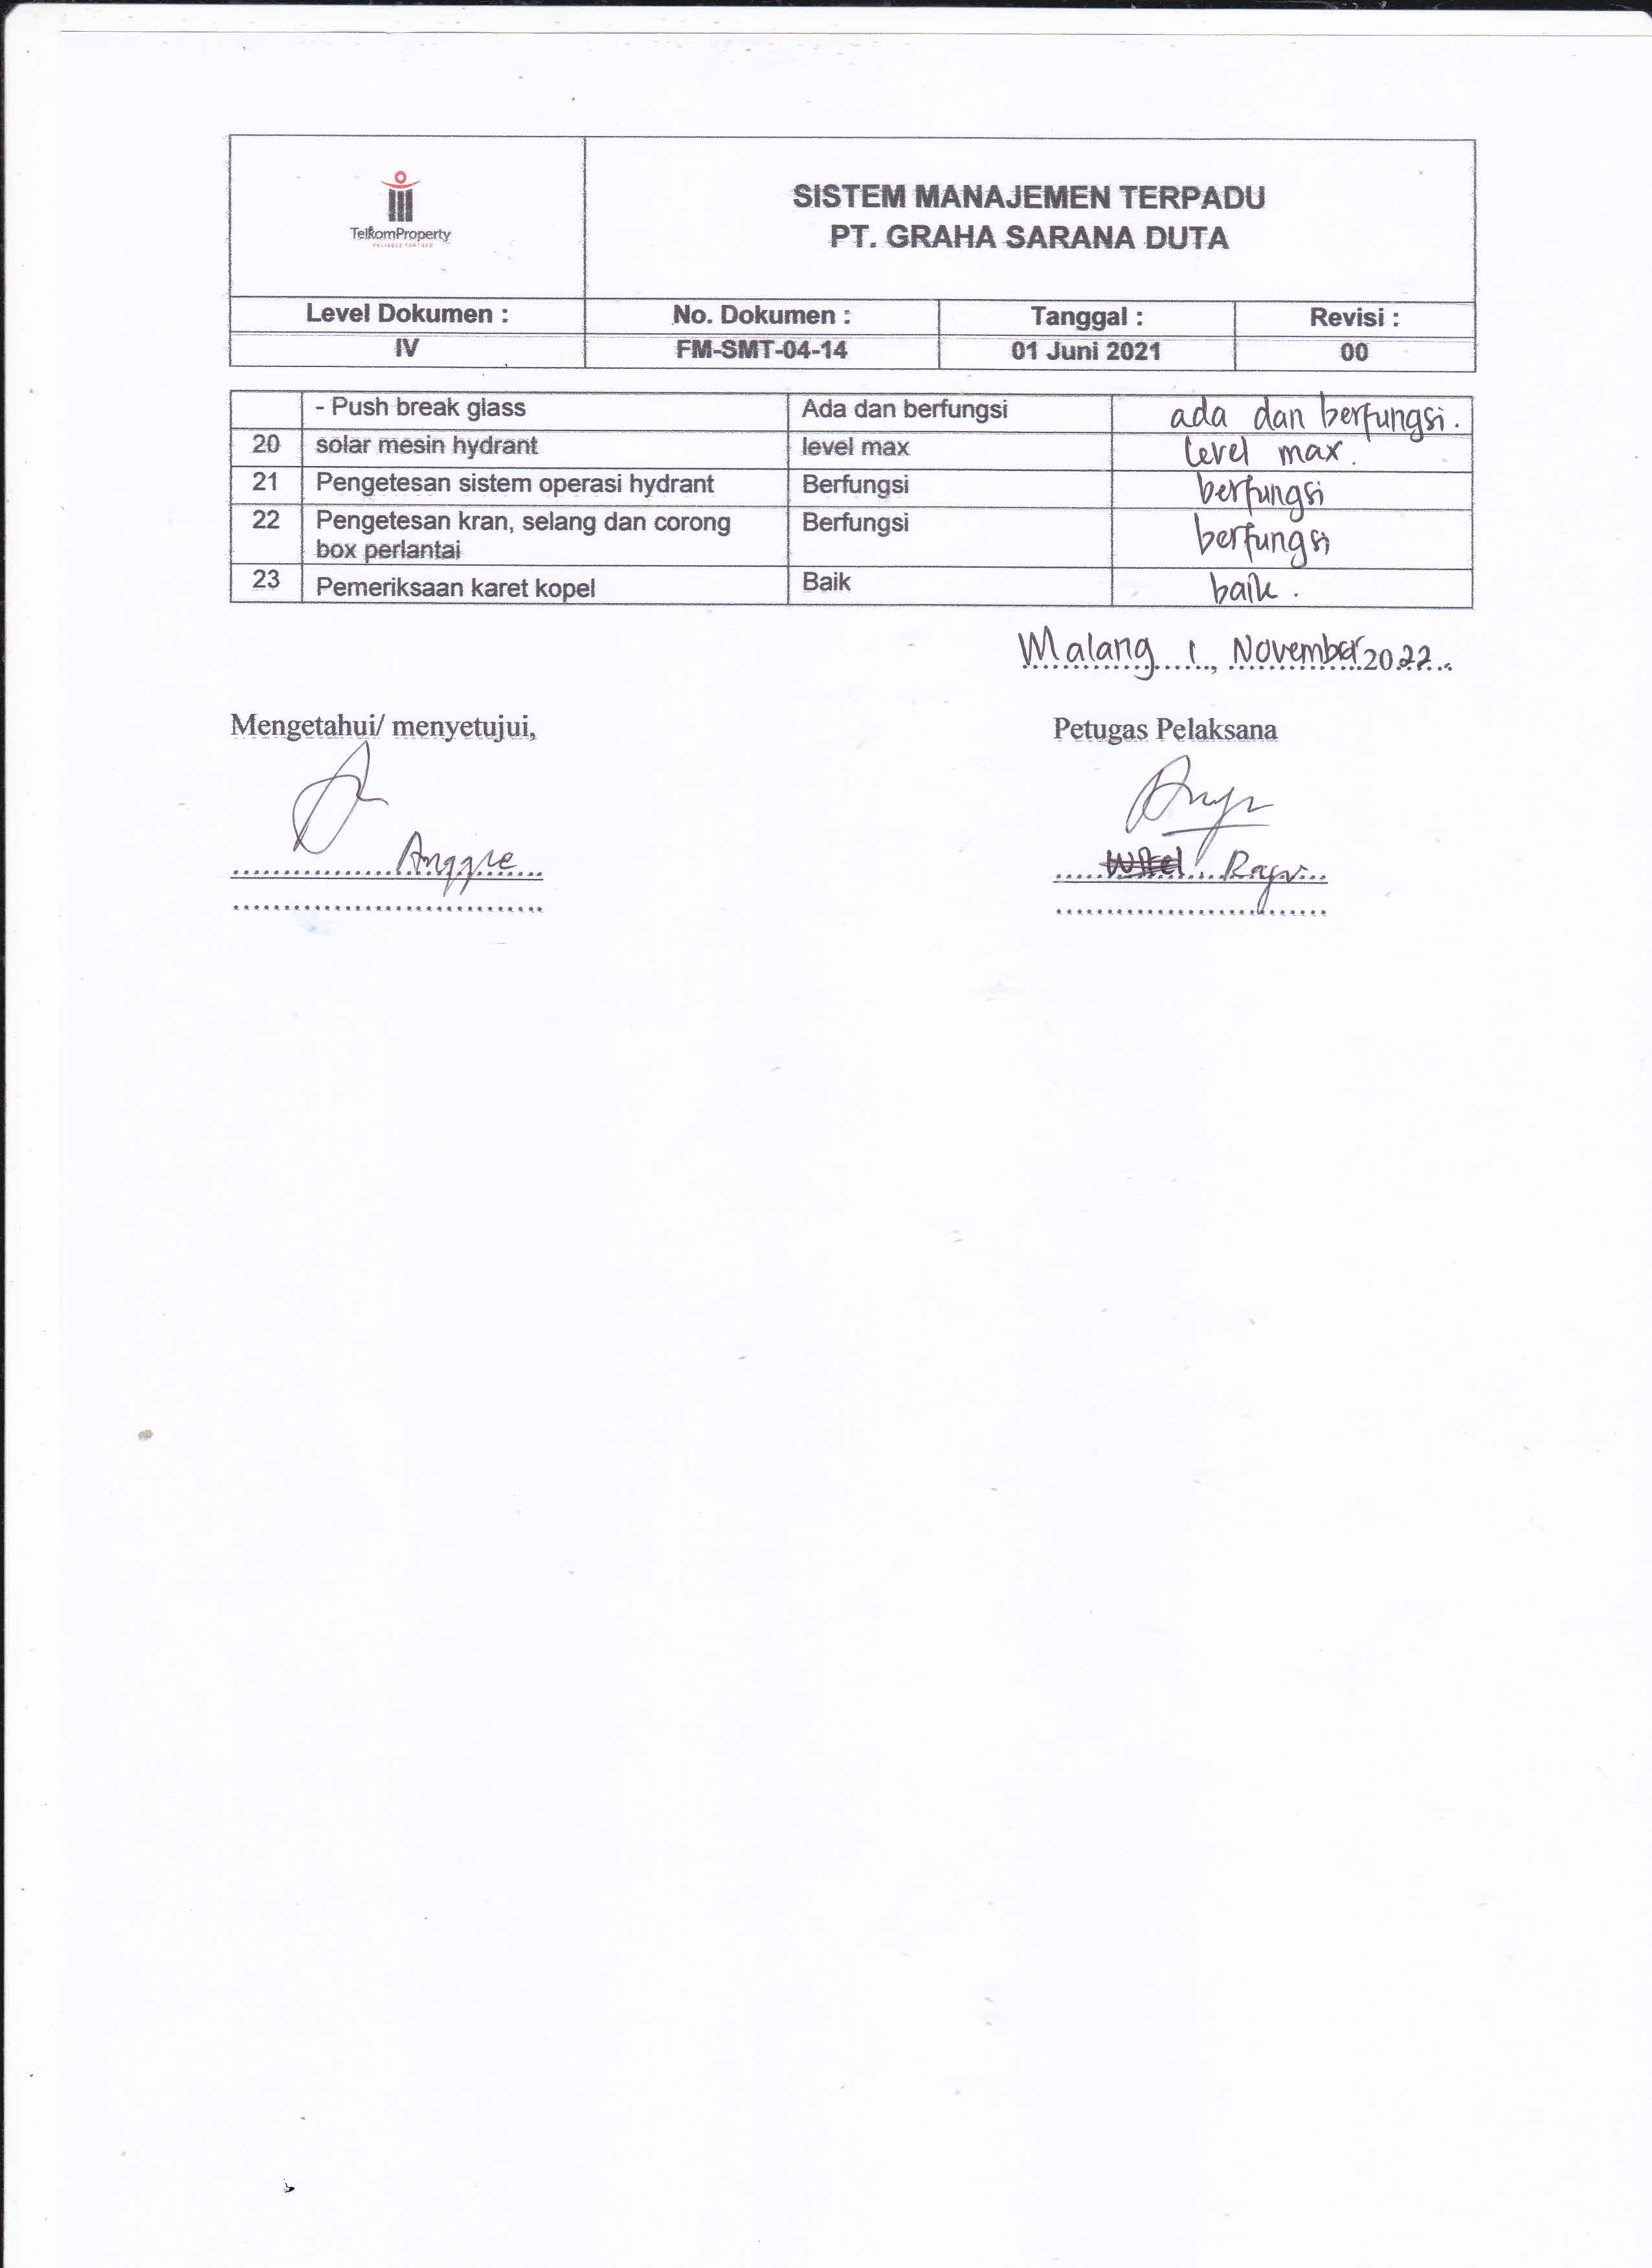 SISTEM MANAJEMEN TERPADU
PT. GRAHA SARANA DUTA
TelkomProperty
RELIABLE PARTNER
Level Dokumen : No. Dokumen : Tanggal : Revisi :
IV FM-SMT-04-14 01 Juni 2021 00
- Push break glass Ada dan berfungsi ada dan berfungsi.
20 solar mesin hydrant level max level max.
21 Pengetesan sistem operasi hydrant Berfungsi berfungsi
22 Pengetesan kran, selang dan corong Berfungsi berfungsi
box perlantai
23 Pemeriksaan karet kopel Baik baik.
Malang 1, November 2022
Mengetahui/ menyetujui, Petugas Pelaksana